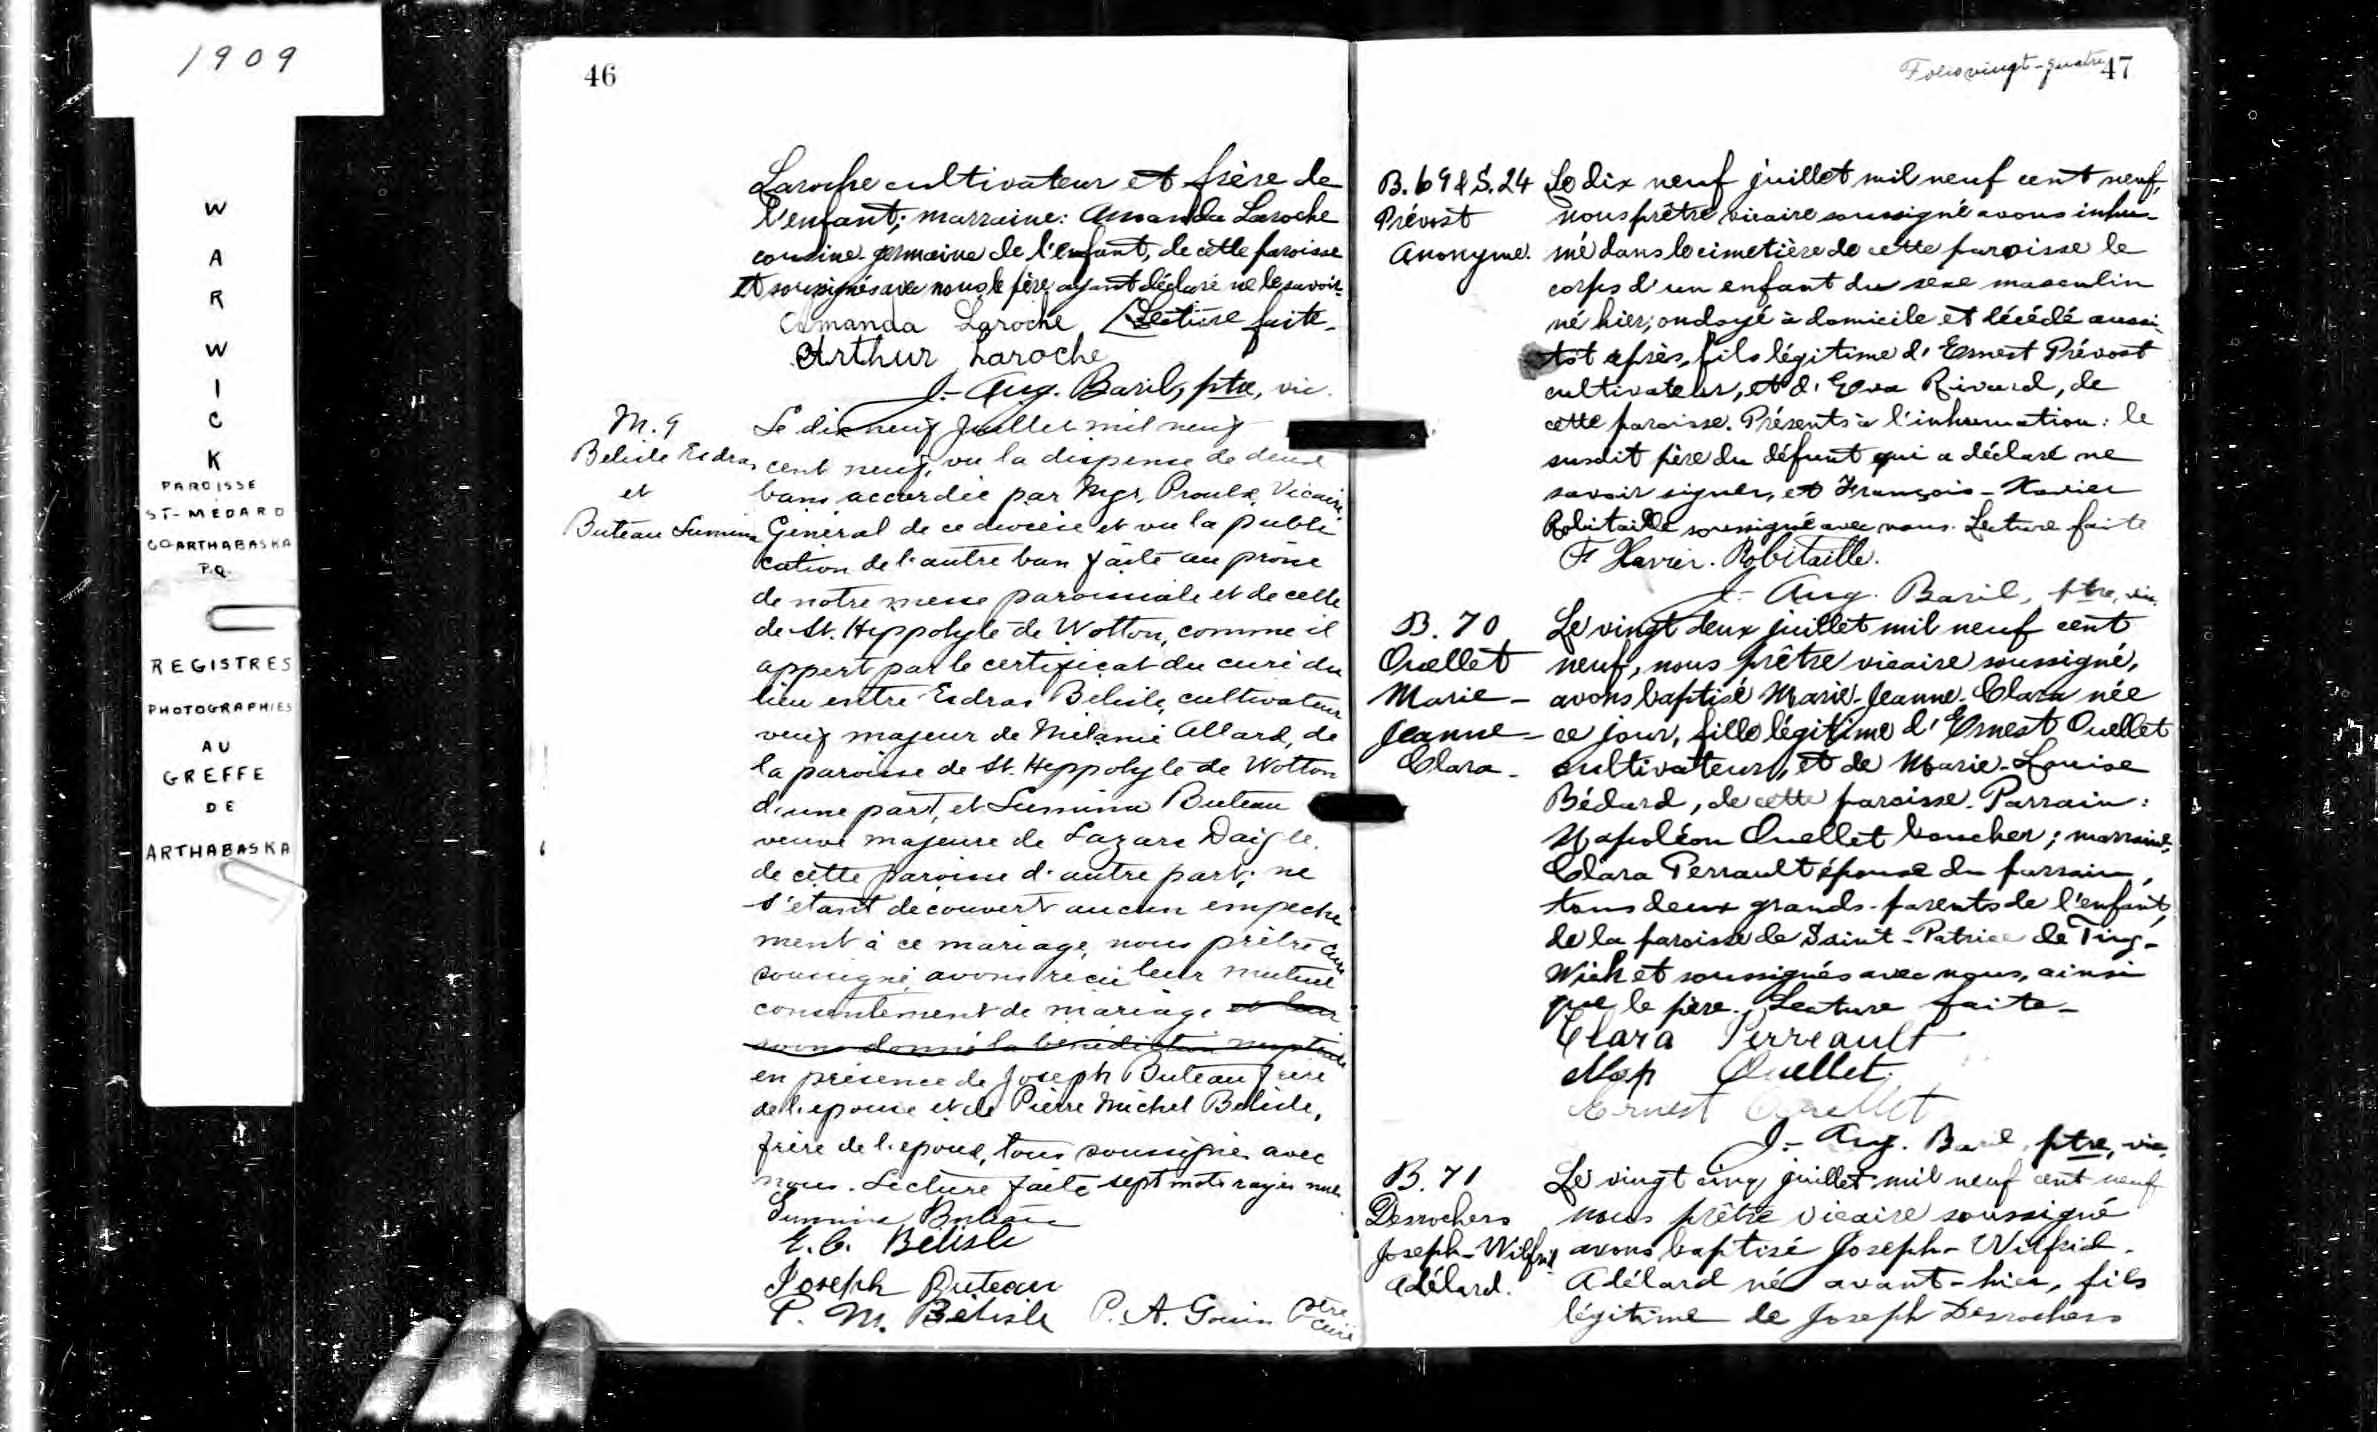 1909
WARWICK
PAROISSE
ST-MÉDARD
CO ARTHABASKA
P.Q.
REGISTRES
PHOTOGRAPHIES
AU
GREFFE
DE
ARTHABASKA
46
Laroche cultivateur et frère de
l'enfant; marraine: Amanda Laroche
cousine germaine de l'enfant, de cette paroisse
et soussignés avec nous, le père ayant déclaré ne le savoir.
Amanda Laroche Lecture faite.
Arthur Laroche
J.- Aug. Baril, ptre, vic.
M. 9
Belisle Esdras
et
Buteau Lumina
Le dix neuf Juillet mil neuf
cent neuf, vu la dispense de deux
bans accordée par Mgr. Proulx, Vicaire
Général de ce diocèse et vu la publi
cation de l'autre ban faite au prône
de notre messe paroissiale et de celle
de St. Hippolyte de Wotton, comme il
appert par le certificat du curé du
lieu entre Esdras Belisle, cultivateur
veuf majeur de Mélanie Allard, de
la paroisse de St. Hippolyte de Wotton
d'une part, et Lumina Buteau
veuve majeure de Lazare Daigle,
de cette paroisse d'autre part; ne
s'étant découvert aucun empeche
ment à ce mariage, nous prêtre curé
soussigné, avons récu leur mutuel
consentement de mariage et leur
avons donné la bénédiction nuptiale
en présence de Joseph Buteau frère
de l'épouse et de Pierre Michel Belisle,
frère de l'époux, tous soussignés avec
nous. Lecture faite sept mots rayés nuls
Lumina Buteau
E. C. Belisle
Joseph Buteau
P. M. Belisle P. A. Gouin Ptre
curé
Folio vingt-quatre 47
B. 69 & S. 24
Prévost
Anonyme.
Le dix neuf juillet mil neuf cent neuf,
nous prêtre vicaire soussigné avons inhu-
mé dans le cimetière de cette paroisse le
corps d'un enfant du sexe masculin
né hier, ondoyé à domicile et décédé aussi-
tôt après, fils légitime d'Ernest Prévost
cultivateur, et d'Eva Rivard, de
cette paroisse. Présents à l'inhumation: le
susdit père du défunt qui a déclaré ne
savoir signer, et François-Xavier
Robitaille soussigné avec nous. Lecture faite
F Xavier. Robitaille.
J.- Aug. Baril, ptre, vic.
B. 70
Ouellet
Marie-
Jeanne-
Clara-
Le vingt deux juillet mil neuf cent
neuf, nous prêtre vicaire soussigné,
avons baptisé Marie-Jeanne-Clara née
ce jour, fille légitime d'Ernest Ouellet
cultivateur, et de Marie-Louise
Bédard, de cette paroisse. Parrain:
Napoléon Ouellet boucher; marraine,
Clara Perrault épouse du parrain,
tous deux grands-parents de l'enfant,
de la paroisse de Saint-Patrice de Ting-
wick et soussignés avec nous, ainsi
que le père. Lecture faite-
Clara Perreault
Nap Ouellet
Ernest Ouellet
J.- Aug. Baril, ptre, vic.
B. 71
Desrochers
Joseph-Wilfrid
Adélard.
Le vingt cinq juillet mil neuf cent neuf
nous prêtre vicaire soussigné
avons baptisé Joseph-Wilfrid-
Adélard né avant-hier, fils
légitime de Joseph Desrochers